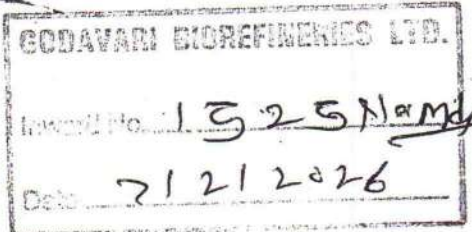 GODAVARI BIOREFINERIES LTD.
Inward No. 1525
Date 7/2/2026